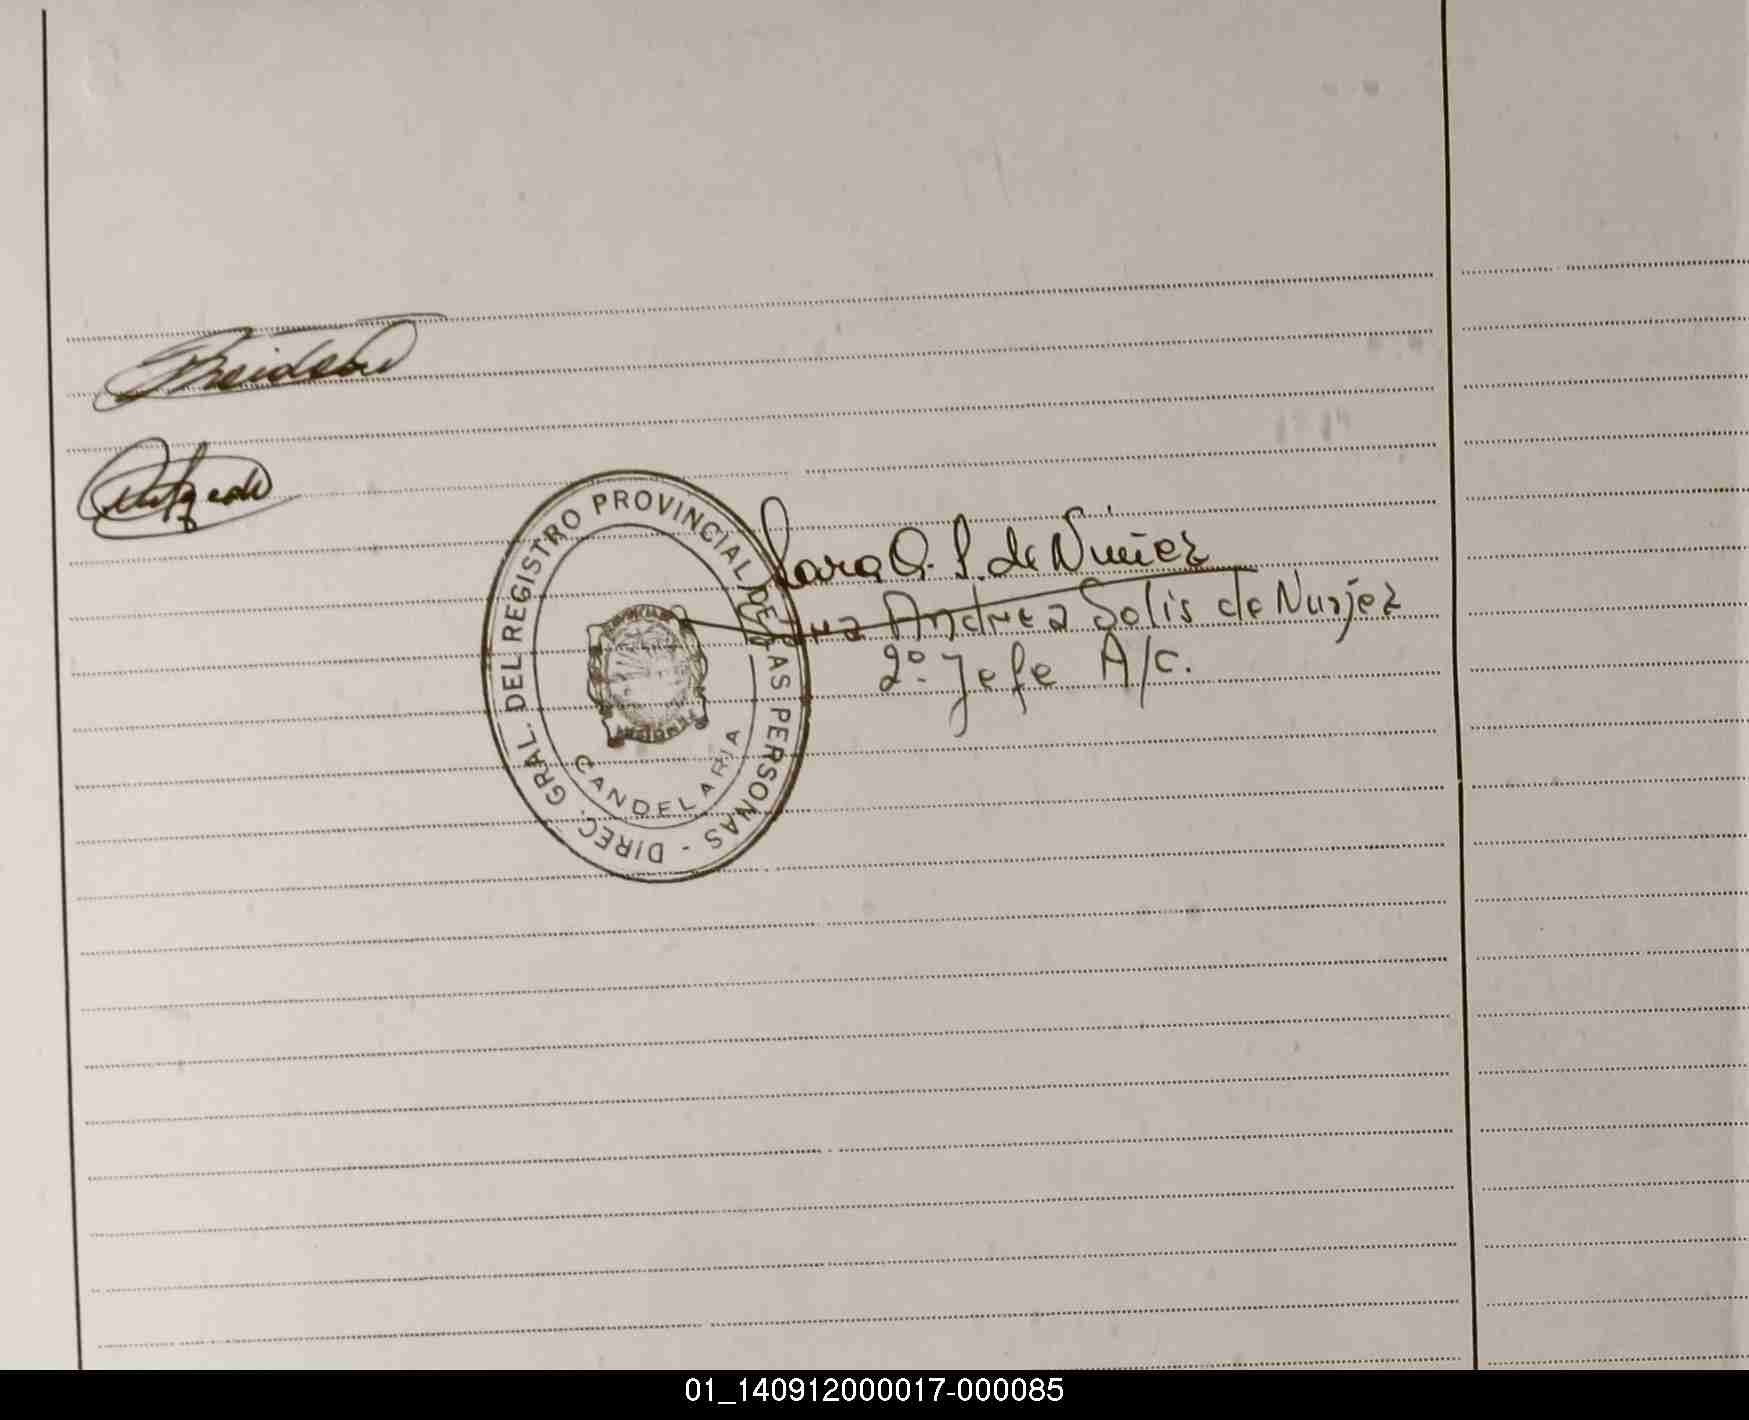 DIREC. GRAL. DEL REGISTRO PROVINCIAL DE LAS PERSONAS -
CANDELARIA
Sara A. S. de Núñez
Andrea Solis de Nuñez
2º Jefe A/c.
01_140912000017-000085